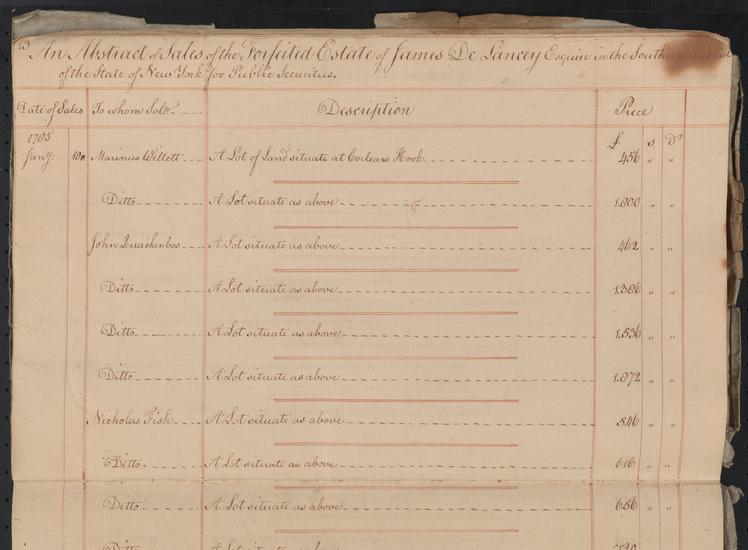 13 An Abstract of Sales of the Forfeited Estate of James De Lancey Esquire in the Southern
of the State of New York for Public Securities.
Date of Sales To whom Sold Description Price
1785 £ s d
Jany: 10th Marinus Willett A Lot of Land situate at Corlears Hook 456 " "
Ditto A Lot situate as above 1.800 " "
John Quackenbos A Lot situate as above 462 " "
Ditto A Lot situate as above 1.386 " "
Ditto A Lot situate as above 1.536 " "
Ditto A Lot situate as above 1.872 " "
Nicholas Fish A Lot situate as above 546 " "
Ditto A Lot situate as above 616 " "
Ditto A Lot situate as above 656 " "
Ditto A Lot situate as above